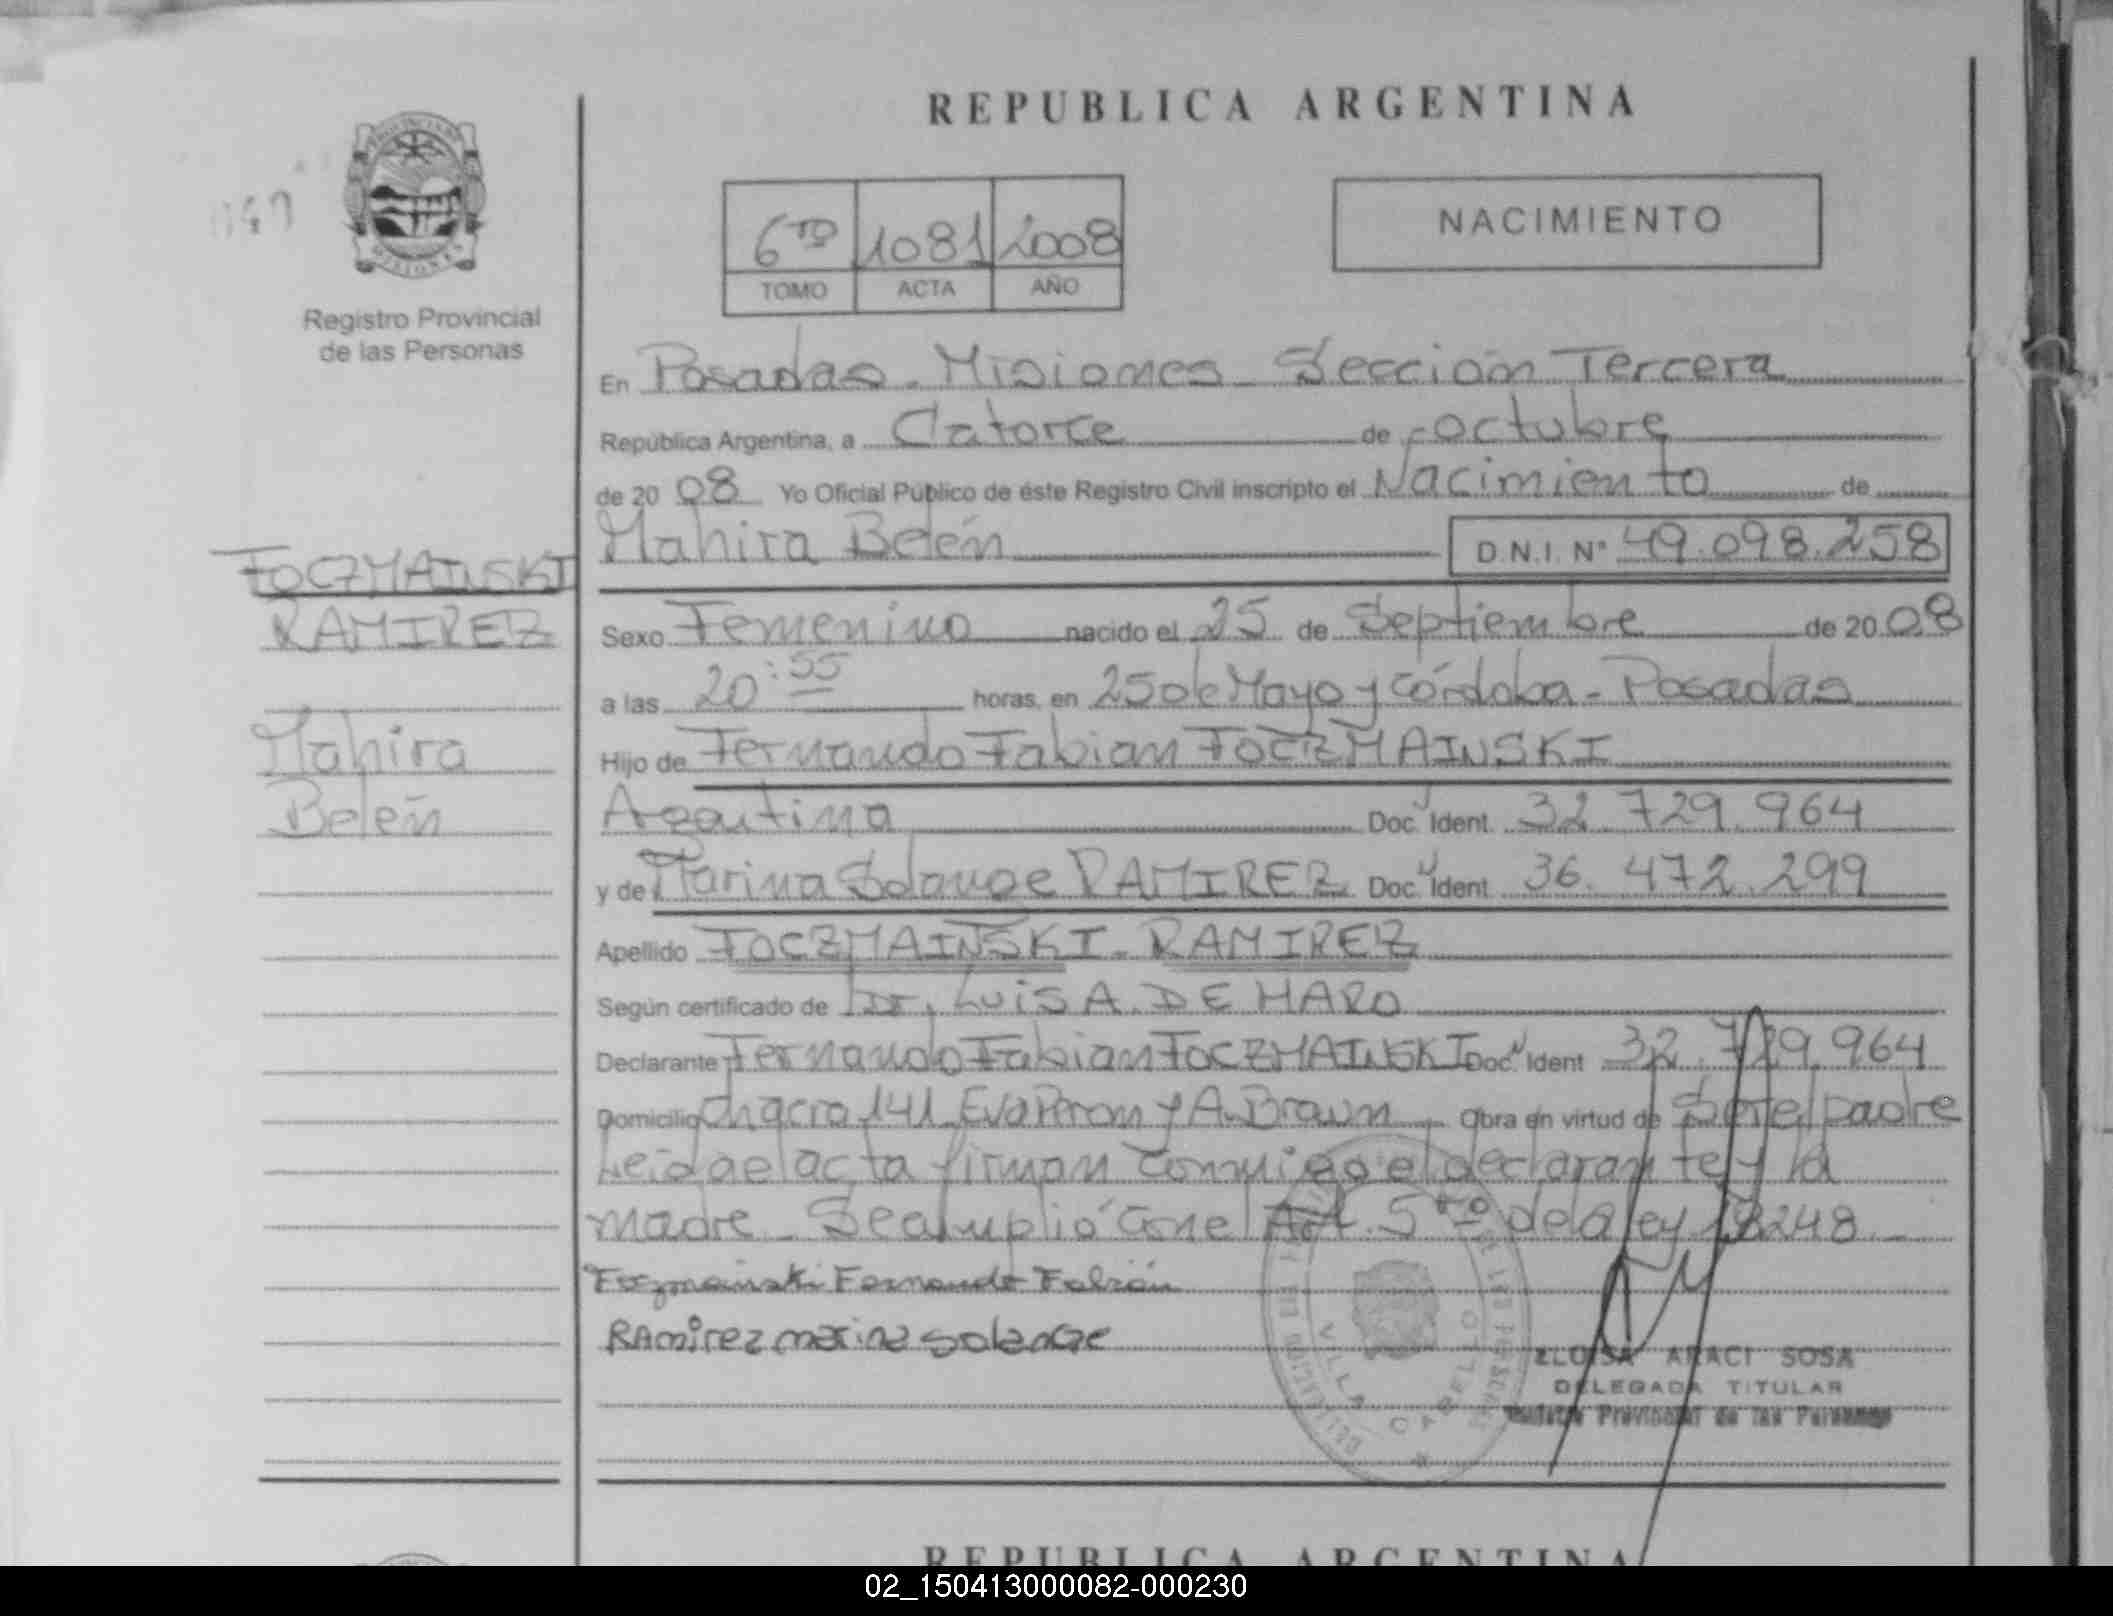 REPUBLICA ARGENTINA
PROVINCIA DE
MISIONES
Registro Provincial
de las Personas
6to 1081 2008
TOMO ACTA AÑO
NACIMIENTO
En Posadas - Misiones - Sección Tercera
República Argentina, a Catorce de octubre
de 2008 Yo Oficial Público de éste Registro Civil inscripto el Nacimiento de
Mahira Belén D.N.I. Nº 49.098.258
FOCZMAINSKI
RAMIREZ
Mahira
Belén
Sexo Femenino nacido el 25 de Septiembre de 2008
a las 20:55 horas, en 25 de Mayo y Córdoba - Posadas
Hijo de Fernando Fabian FOCZMAINSKI
Argentina Doc. Ident. 32.729.964
y de Marina Solange RAMIREZ Doc. Ident. 36.472.299
Apellido FOCZMAINSKI - RAMIREZ
Según certificado de Dr. LUIS A. DE HARO
Declarante Fernando Fabian FOCZMAINSKI Doc. Ident 32.729.964
Domicilio Chacra 141 - Eva Peron y A. Brown Obra en virtud de Ser el padre
Leida el acta firman conmigo el declarante y la
madre - Se cumplió con el Art. 5to de la ley 18248 -
Foczmainski Fernando Fabián
RAmirez marina solange
VILLA CABELLO
ELOISA ARACI SOSA
DELEGADA TITULAR
Registro Provincial de las Personas
REPUBLICA ARGENTINA
02_150413000082-000230